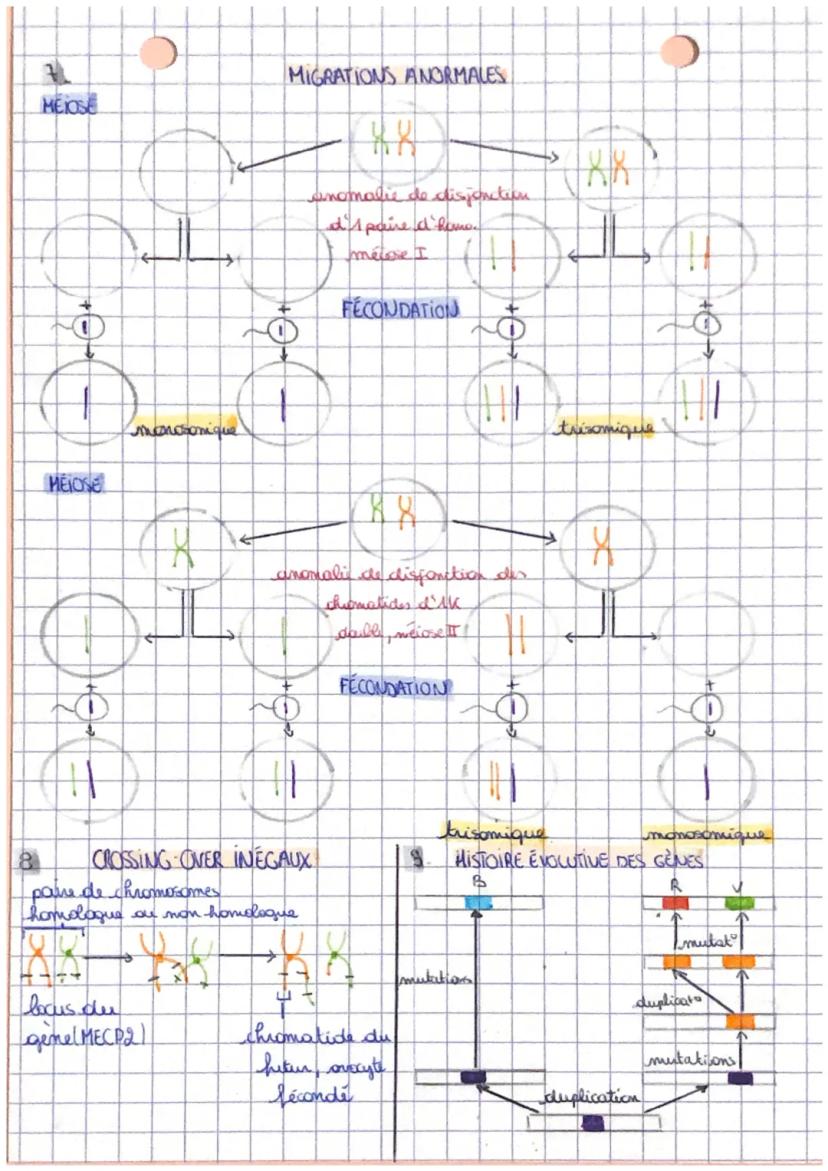 7.
MIGRATIONS ANORMALES
MÉIOSE
anomalie de disjonction
d'1 paire d'homo.
méiose I
FÉCONDATION
+
+
+
+
monosomique
trisomique
MÉIOSE
anomalie de disjonction des
chromatides d'1K
double, méiose II
FÉCONDATION
+
+
+
+
trisomique
monosomique
8
CROSSING-OVER INÉGAUX
paire de chromosomes
homologue ou non homologue
locus du
gène (MECP2)
chromatide du
futur, ovocyte
fécondé
9.
HISTOIRE ÉVOLUTIVE DES GÈNES
B
R
V
mutat°
mutations
duplicat°
mutations
duplication